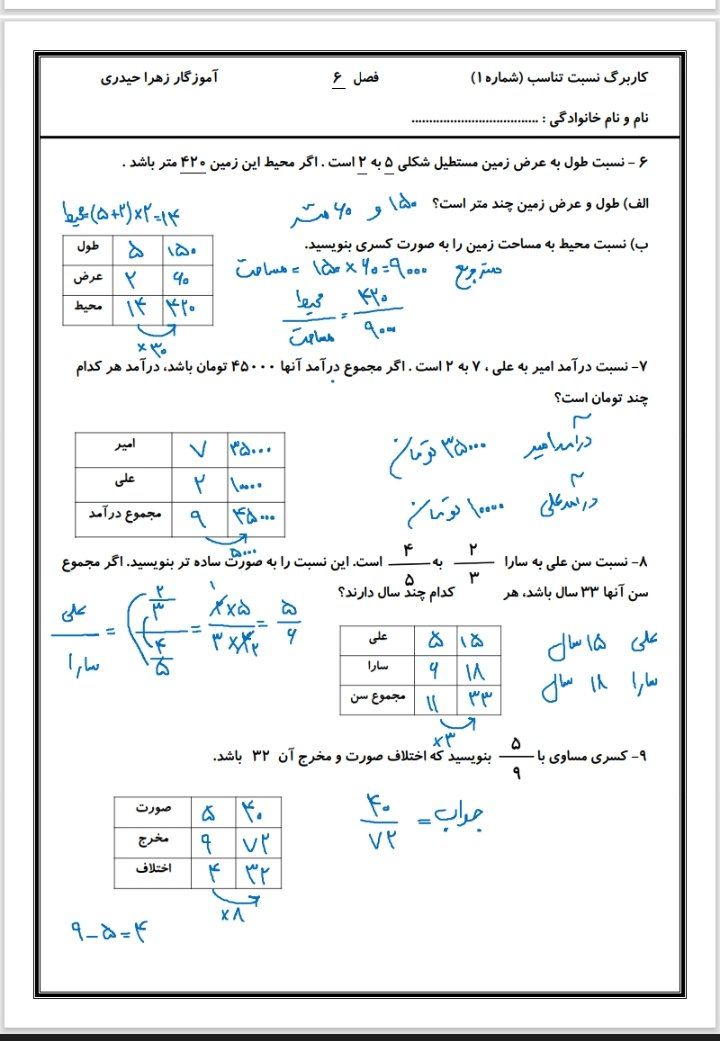 کاربرگ نسبت تناسب (شماره ۱) فصل ۶ آموزگار زهرا حیدری
نام و نام خانوادگی : ....................................
۶ – نسبت طول به عرض زمین مستطیل شکلی ۵ به ۲ است . اگر محیط این زمین ۴۲۰ متر باشد .
الف) طول و عرض زمین چند متر است؟ ۱۵۰ و ۶۰ متر
محیط=(۵+۲)×۲=۱۴
ب) نسبت محیط به مساحت زمین را به صورت کسری بنویسید.
طول ۵ ۱۵۰
عرض ۲ ۶۰
محیط ۱۴ ۴۲۰
×۳۰
مساحت = ۱۵۰×۶۰=۹۰۰۰ متر مربع
محیط/مساحت = ۴۲۰/۹۰۰۰
۷- نسبت درآمد امیر به علی ، ۷ به ۲ است . اگر مجموع درآمد آنها ۴۵۰۰۰ تومان باشد، درآمد هر کدام
چند تومان است؟
امیر ۷ ۳۵۰۰۰
علی ۲ ۱۰۰۰۰
مجموع درآمد ۹ ۴۵۰۰۰
۵۰۰۰
درآمد امیر ۳۵۰۰۰ تومان
درآمد علی ۱۰۰۰۰ تومان
۸- نسبت سن علی به سارا ۲/۳ به ۴/۵ است. این نسبت را به صورت ساده تر بنویسید. اگر مجموع
سن آنها ۳۳ سال باشد، هر کدام چند سال دارند؟
علی/سارا = (۲/۳)/(۴/۵) = ۲×۵/۳×۴ = ۵/۶
۱
۲
علی ۵ ۱۵
سارا ۶ ۱۸
مجموع سن ۱۱ ۳۳
×۳
علی ۱۵ سال
سارا ۱۸ سال
۹- کسری مساوی با ۵/۹ بنویسید که اختلاف صورت و مخرج آن ۳۲ باشد.
صورت ۵ ۴۰
مخرج ۹ ۷۲
اختلاف ۴ ۳۲
×۸
جواب = ۴۰/۷۲
۹-۵=۴